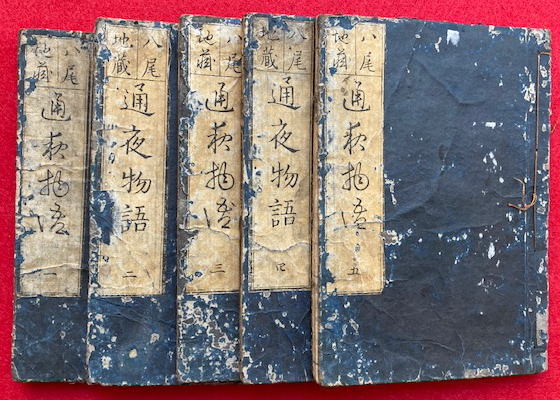 八尾
地藏
通夜物語
一
八尾
地藏
通夜物語
二
八尾
地藏
通夜物語
三
八尾
地藏
通夜物語
四
八尾
地藏
通夜物語
五